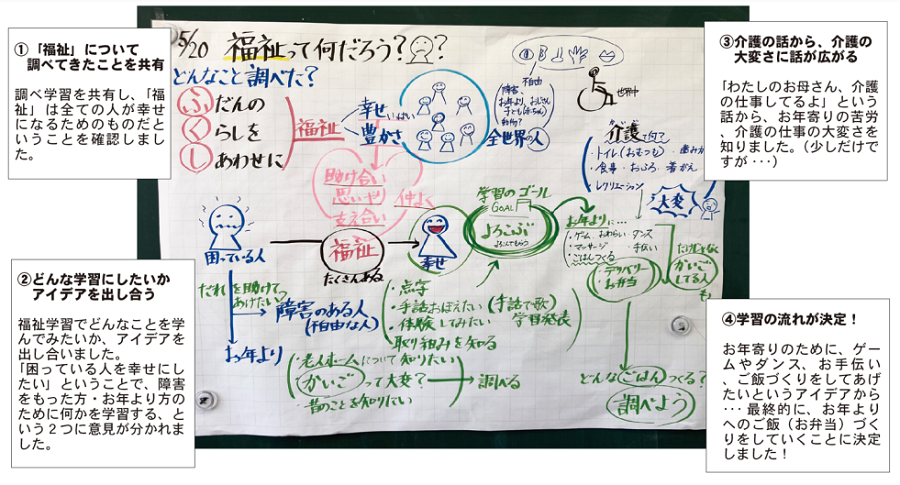 ①「福祉」について
調べてきたことを共有
調べ学習を共有し、「福
祉」は全ての人が幸せ
になるためのものだと
いうことを確認しまし
た。
5/20 福祉って何だろう??
どんなこと調べた?
ふだんの
くらしを
あわせに
し
福祉
幸せ
いっぱい
豊かさ
障害、不自由
お年より、おじさん
全世界の人
助け合い
思いやり
支え合い
仲よく
介護って何?
・トイレ(おもつも)
・食事・おふろ・着がえ
レクリエーション
大変
③介護の話から、介護の
大変さに話が広がる
「わたしのお母さん、介護
の仕事してるよ」という
話から、お年寄りの苦労
、介護の仕事の大変さを
知りました。(少しだけで
すが・・・)
困っている人
福祉
たくさんある
幸せ
学習のゴール
GOAL
よろこぶ
お年よりに…
・ゲーム おわらい ダンス
・マッサージ 手伝い
・ごはんつくる
・デリバリー
お弁当
だけじゃなく
かいご
してる人
も
②どんな学習にしたいか
アイデアを出し合う
福祉学習でどんなことを学
んでみたいか、アイデア
を出し合いました。
「困っている人を幸せにし
たい」ということで、障害
をもった方・お年より方の
ために何かを学習する、と
いう2つに意見が分かれま
した。
だれを助けて
あげたい?
障害のある人
(不自由な人)
お年より
・点字
・手話おぼえたい(手話で歌)
・体験してみたい 学習発表
取り組みを知る
・老人ホームについて知りたい
・かいごって大変?→調べる
・昔のことを知りたい
どんなごはんつくる?
調べよう
④学習の流れが決定!
お年寄りのために、ゲー
ムやダンス、お手伝い
、ご飯づくりをしてあげ
たいというアイデアから
・・・最終的に、お年より
へのご飯(お弁当)づく
りをしていくことに決定
しました!